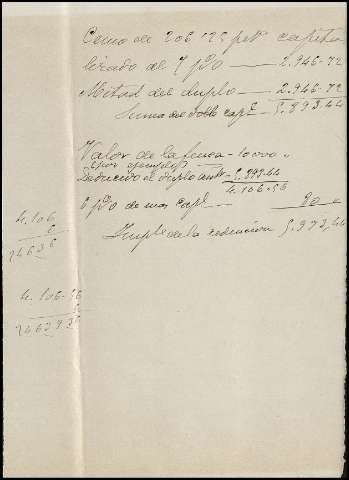 Censo de 206'25 ps capita
lizado al 7 p%o —— 2.946-72
Mitad del duplo —— 2.946-72
Suma del doble capl 5.893.44
Valor de la finca - 10000 "
(por ejemplo)
deducido el duplo ante - 5.893.44
4.106.56
6 p%o de mas capl ---
Impte de la redencion 5.973,44
4.106
6
24636
4.106-56
6
2463936